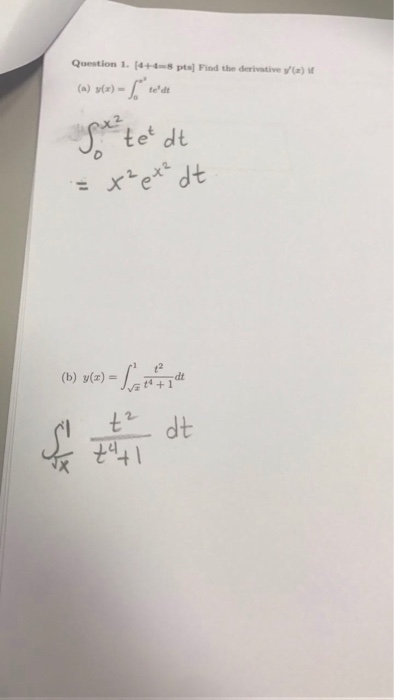 Question 1. [4+4=8 pts] Find the derivative y′(x) if
(a) y(x) = ∫₀^{x²} teᵗdt
∫₀^{x²} teᵗ dt
= x²e^{x²} dt
(b) y(x) = ∫_{√x}^{1} t²/(t⁴ + 1) dt
∫_{√x}^{1} t²/(t⁴+1) dt